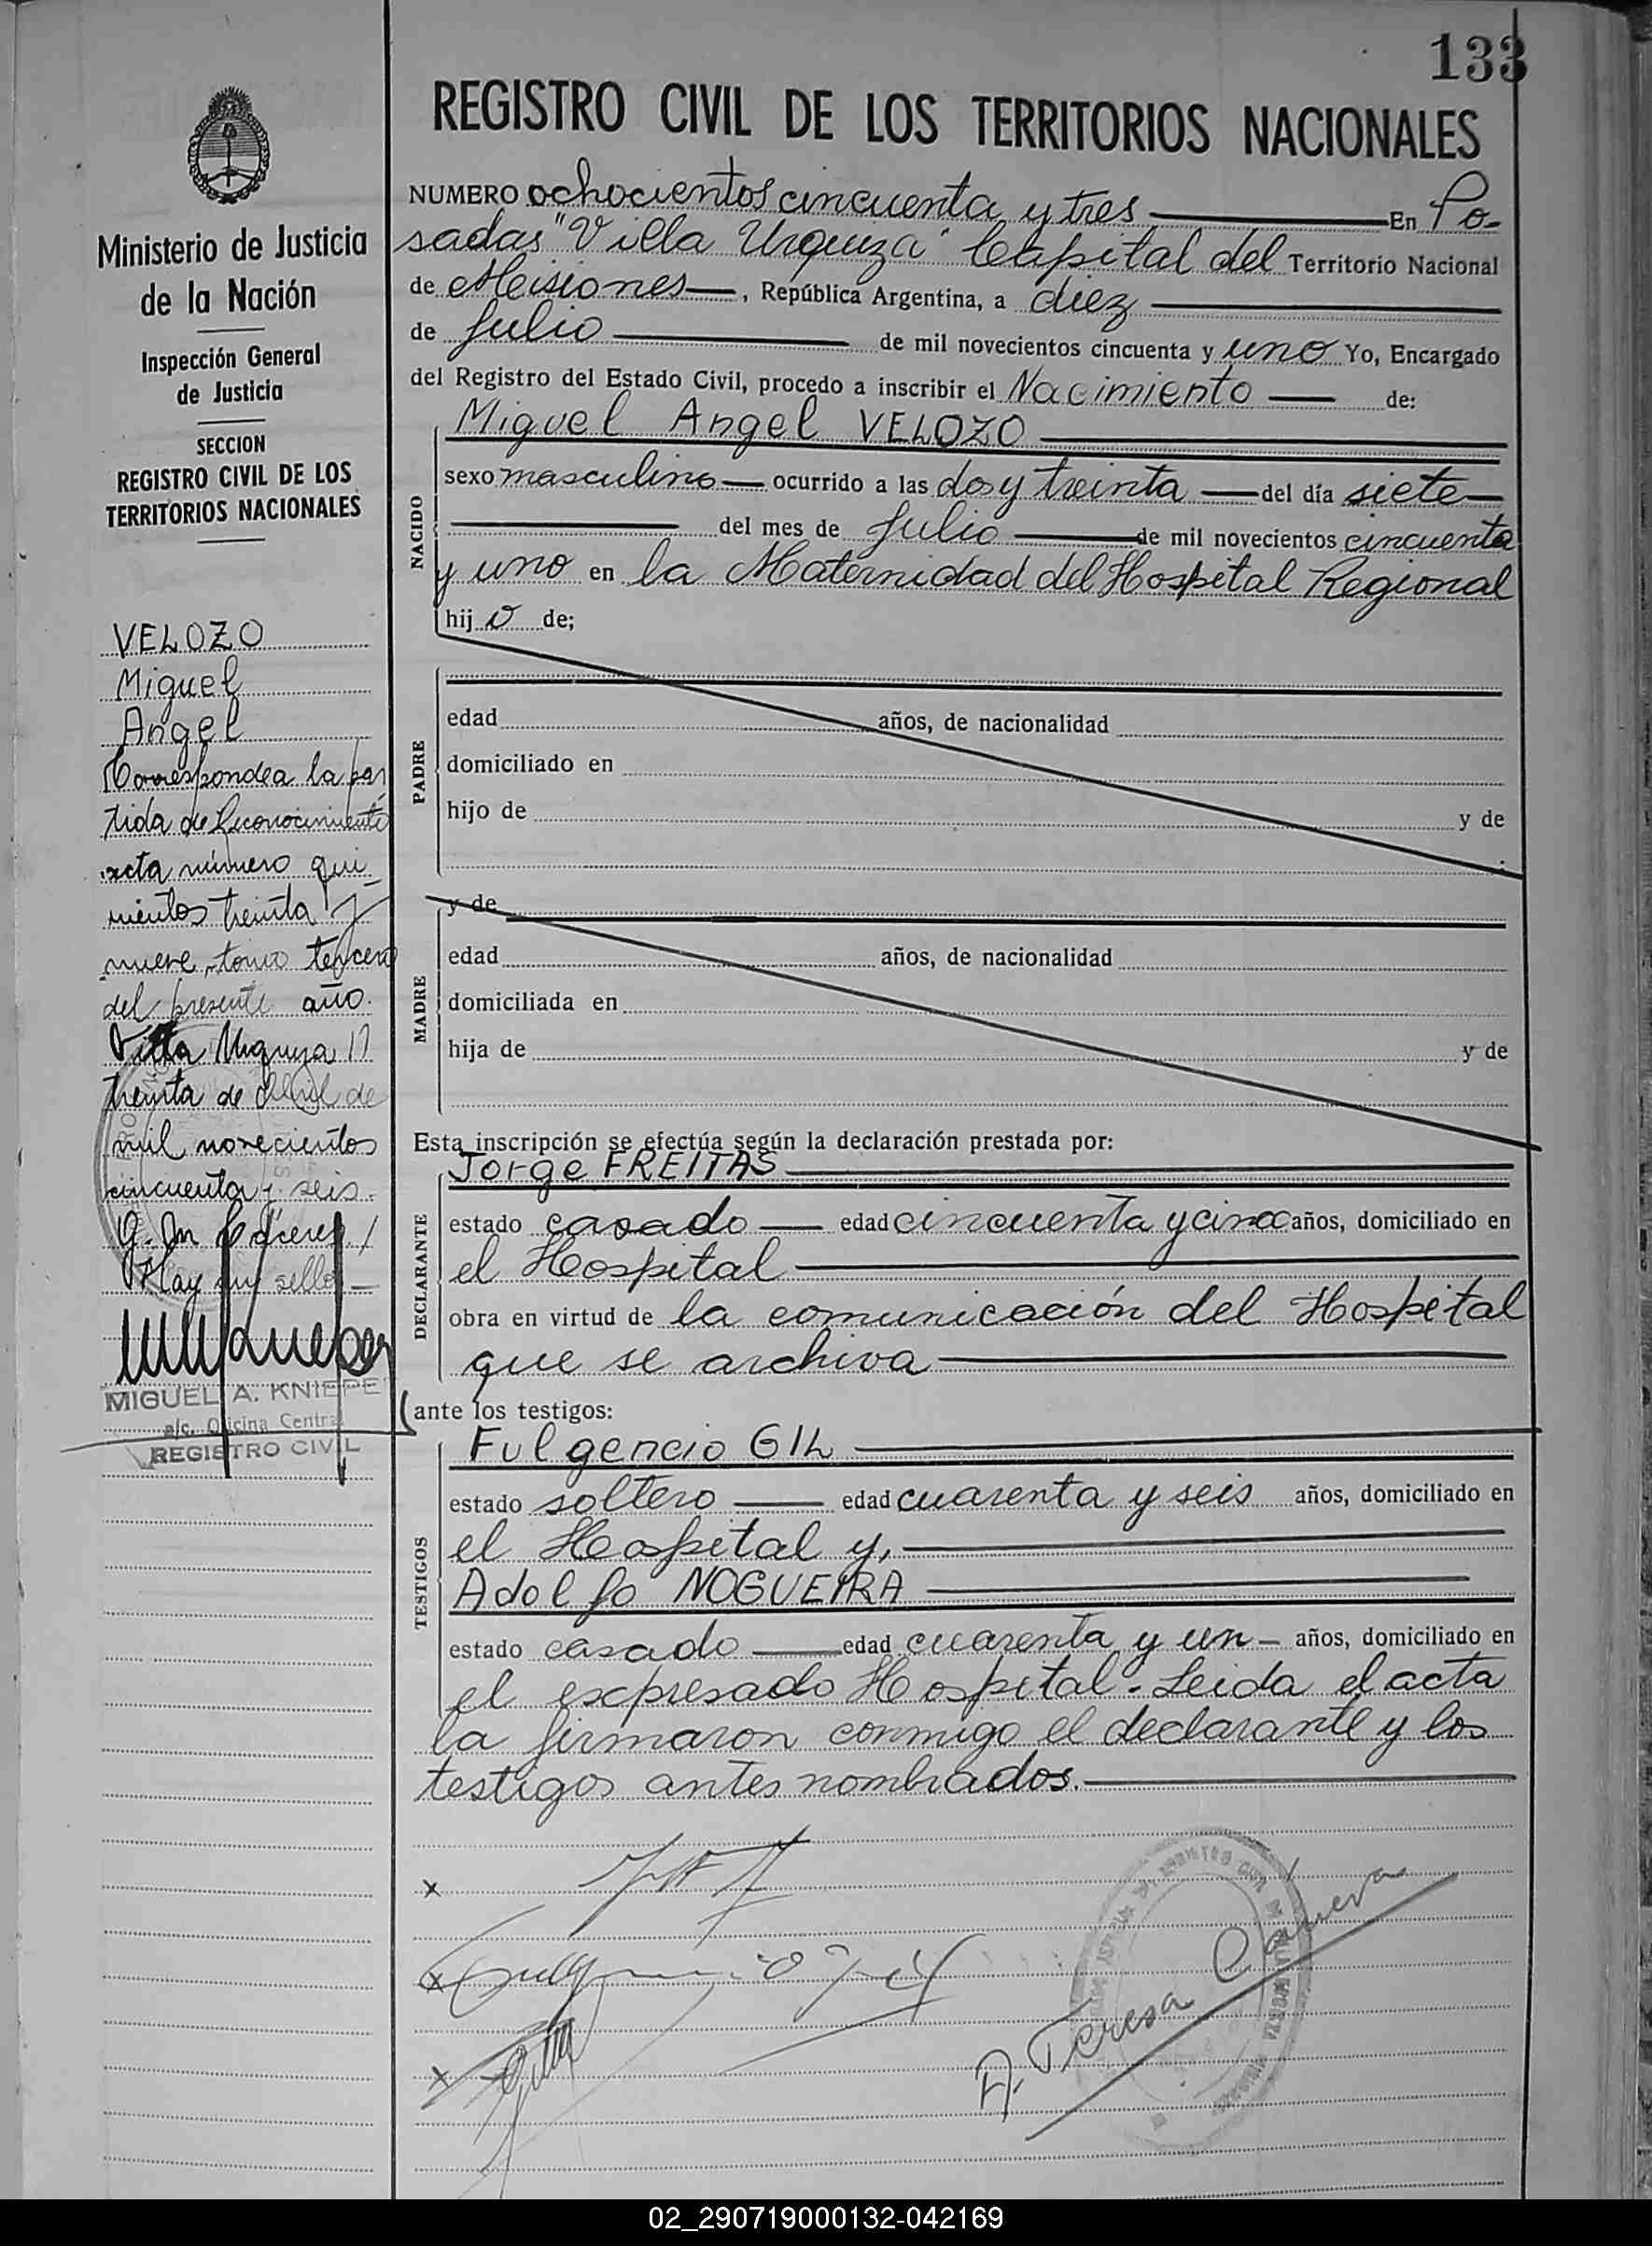 133
REGISTRO CIVIL DE LOS TERRITORIOS NACIONALES
Ministerio de Justicia
de la Nación
Inspección General
de Justicia
SECCION
REGISTRO CIVIL DE LOS
TERRITORIOS NACIONALES
VELOZO
Miguel
Angel
Corresponde a la par
tida de Reconocimiento
acta número qui
nientos treinta y
nueve, tomo tercero
del presente año.
Villa Urquiza
treinta de Abril de
mil novecientos
cincuenta y seis.
G. M. Cáceres /
Hay un sello
MIGUEL A. KNIEPE
a/c. Oficina Central
REGISTRO CIVIL
NUMERO ochocientos cincuenta y tres En Po-
sadas "Villa Urquiza" Capital del Territorio Nacional
de Misiones, República Argentina, a diez
de Julio de mil novecientos cincuenta y uno Yo, Encargado
del Registro del Estado Civil, procedo a inscribir el Nacimiento de:
NACIDO
Miguel Angel VELOZO
sexo masculino ocurrido a las dos y treinta del día siete
del mes de Julio de mil novecientos cincuenta
y uno en la Maternidad del Hospital Regional
hij o de;
PADRE
edad años, de nacionalidad
domiciliado en
hijo de y de
MADRE
y de
edad años, de nacionalidad
domiciliada en
hija de y de
Esta inscripción se efectúa según la declaración prestada por:
DECLARANTE
Jorge FREITAS
estado casado edad cincuenta y cinco años, domiciliado en
el Hospital
obra en virtud de la comunicación del Hospital
que se archiva
ante los testigos:
TESTIGOS
Fulgencio GIL
estado soltero edad cuarenta y seis años, domiciliado en
el Hospital y,
Adolfo NOGUEIRA
estado casado edad cuarenta y un años, domiciliado en
el expresado Hospital. Leida el acta
la firmaron conmigo el declarante y los
testigos antes nombrados.
x
x
x
A. Teresa Cáneva
02_290719000132-042169